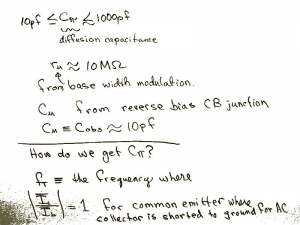 10pf ≤ Cπ ≲ 1000pf
diffusion capacitance
rμ ≈ 10MΩ
from base width modulation.
Cμ from reverse bias CB junction
Cμ ≡ Cobo ≈ 10pf
How do we get Cπ?
fT ≡ the frequency where
|Ic/Ib| = 1 for common emitter where
collector is shorted to ground for AC